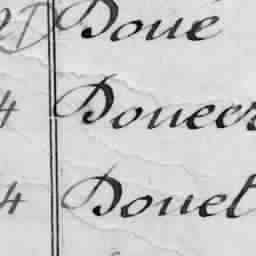 2D Doué
4 Doueer
4 Douet